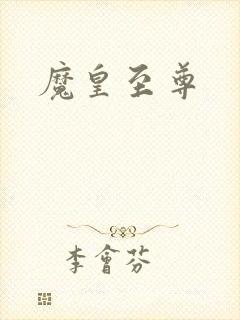 魔皇至尊
李會芬